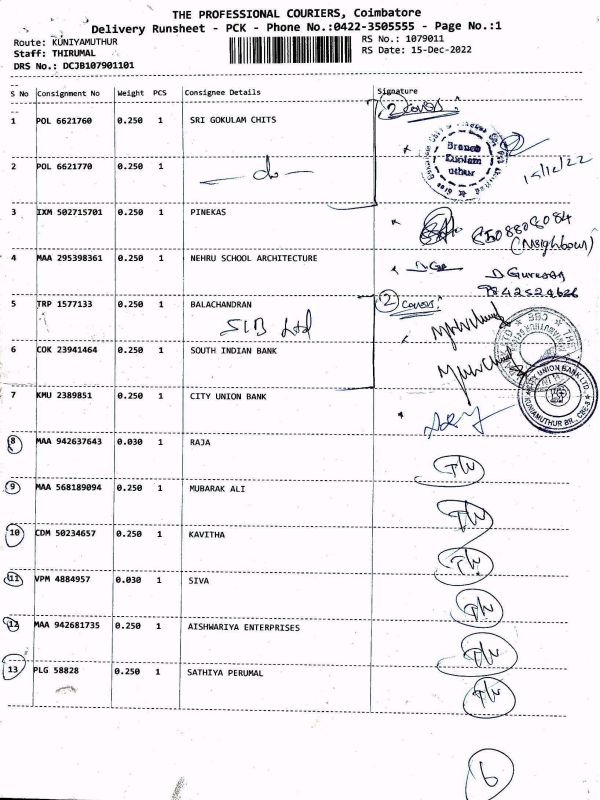 THE PROFESSIONAL COURIERS, Coimbatore
Delivery Runsheet - PCK - Phone No.:0422-3505555 - Page No.:1
Route: KUNIYAMUTHUR
RS No.: 1079011
Staff: THIRUMAL
RS Date: 15-Dec-2022
DRS No.: DCJB107901101
S No Consignment No Weight PCS Consignee Details Signature
2 Covers
1 POL 6621760 0.250 1 SRI GOKULAM CHITS
Branch
Kuniam
uthur
15/12/22
2 POL 6621770 0.250 1 — do —
3 IXM 502715701 0.250 1 PINEKAS
(Neighbour)
4 MAA 295398361 0.250 1 NEHRU SCHOOL ARCHITECTURE
5 TRP 1577133 0.250 1 BALACHANDRAN 2 Covers
SIB Ltd
6 COK 23941464 0.250 1 SOUTH INDIAN BANK
7 KMU 2389851 0.250 1 CITY UNION BANK
CITY UNION BANK LTD.
KUNIAMUTHUR BR. CBE-8
8 MAA 942637643 0.030 1 RAJA
9 MAA 568189094 0.250 1 MUBARAK ALI
10 CDM 50234657 0.250 1 KAVITHA
11 VPM 4884957 0.030 1 SIVA
12 MAA 942681735 0.250 1 AISHWARIYA ENTERPRISES
13 PLG 58828 0.250 1 SATHIYA PERUMAL
6